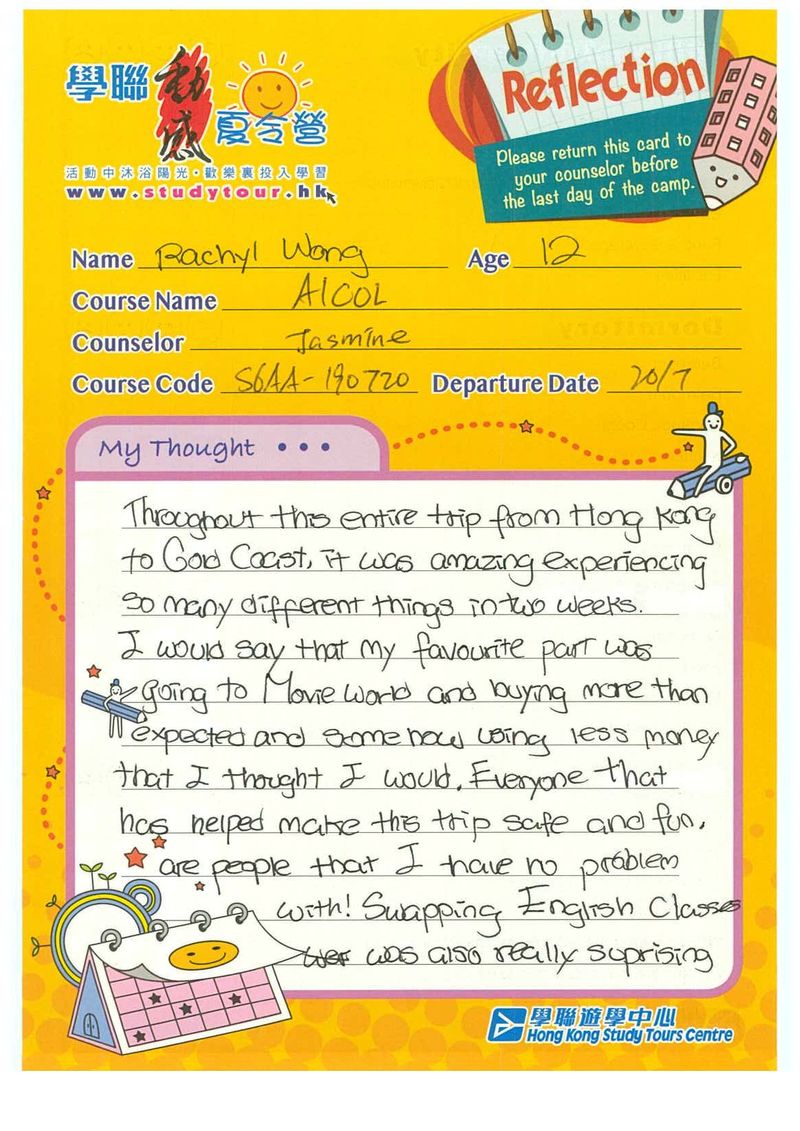 學聯 動感 夏令營
活動中沐浴陽光・歡樂裏投入學習
www.studytour.hk
Reflection
Please return this card to
your counselor before
the last day of the camp.
Name Rachyl Wong Age 12
Course Name AICOL
Counselor Jasmine
Course Code S6AA-190720 Departure Date 20/7
My Thought • • •
Throughout this entire trip from Hong Kong
to Gold Coast, it was amazing experiencing
so many different things in two weeks.
I would say that my favourite part was
going to Movie world and buying more than
expected and somehow using less money
that I thought I would. Everyone that
has helped make this trip safe and fun,
are people that I have no problem
with! Swapping English Classes
was also really suprising
學聯遊學中心
Hong Kong Study Tours Centre